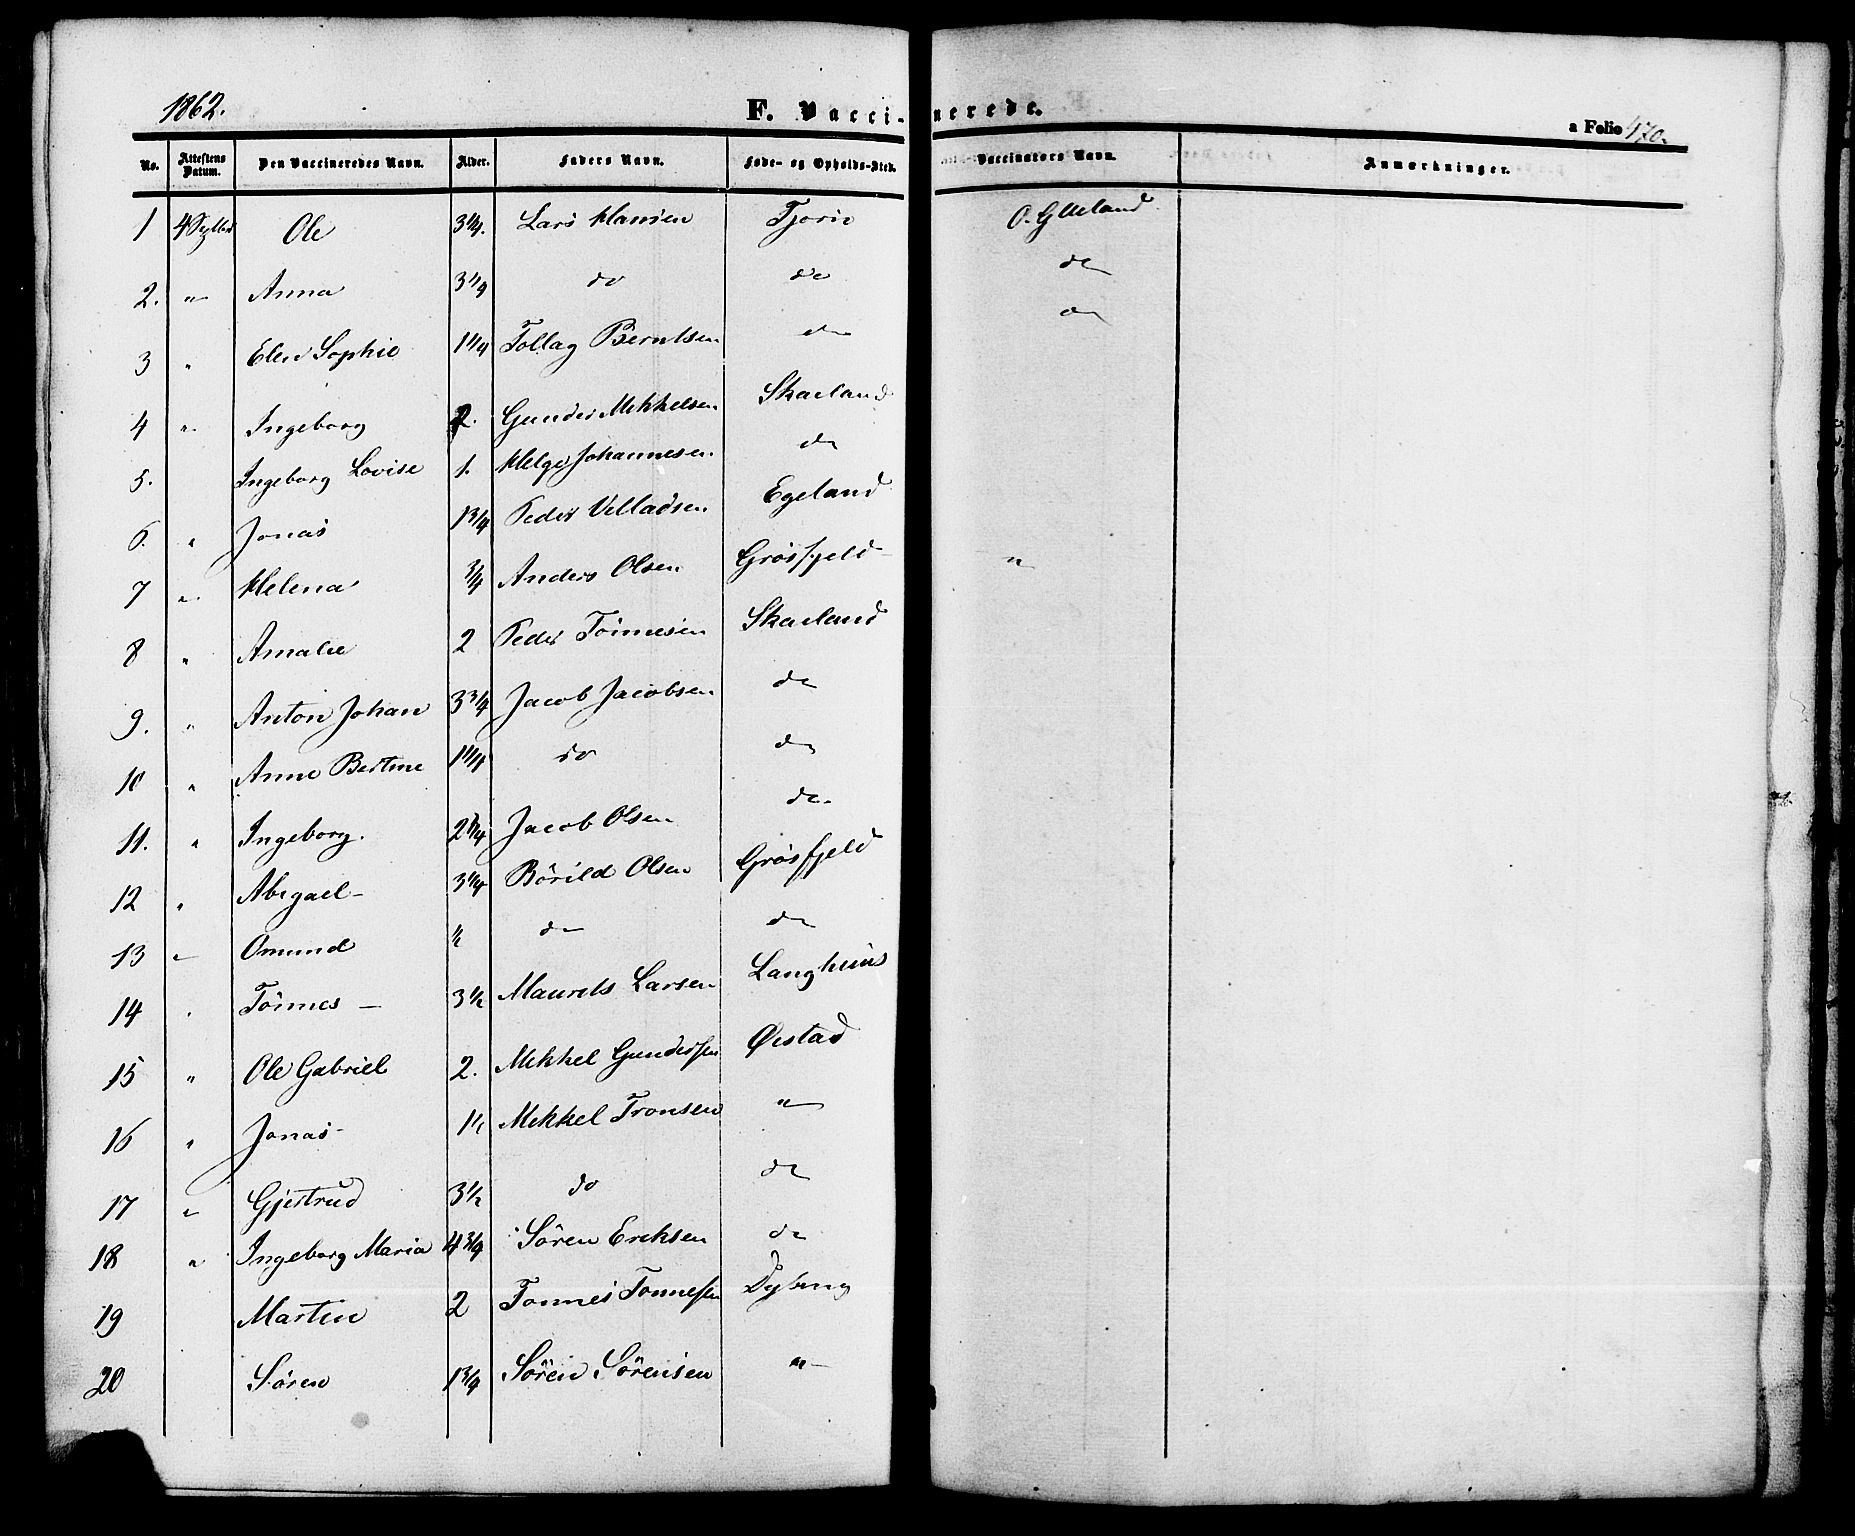 1862. F. Vaccinerede. a Folio 470.
No. Attestens Datum. Den Vaccineredes Navn. Alder. Faders Navn. Føde- og Opholds-Sted. Vaccinators Navn. Anmærkninger.
1 4 Ole 3 1/4. Lars Hansen Tjorn O. G Ueland
2. " Anna 3 1/4 do do do
3 " Elen Sophie 1 1/4 Tollag Berntsen do do
4 " Ingeborg 2. Gunder Mikkelsen Skaeland
5. Ingeborg Lovise 1. Helge Johannesen do
6. " Jonas 1 3/4 Peder Velladsen Egeland
7 " Helena 3/4 Anders Olsen Grösfjeld "
8 " Amalie 2 Peder Tönnesen Skaeland
9. " Anton Johan 3 3/4 Jacob Jacobsen do
10 " Anne Bertine 1 1/4 do do
11. " Ingeborg. 2 1/4 Jacob Olsen do
12 " Abigael 3 1/4 Börild Olsen Grösfjeld
13 " Omund 1/2 do do
14 " Tönnes 3 1/2 Maurits Larsen Langhuus
15 " Ole Gabriel 2. Mikkel Gundersen Østad
16 " Jonas 1 1/2 Mikkel Tronsen "
17 " Gjertrud 3 1/2 do do
18 " Ingeborg Maria 4 3/4 Sören Eriksen do
19 Martin 2 Tonnes Tonnesen Dybing
20 Sören 1 3/4 Sören Sörensen "